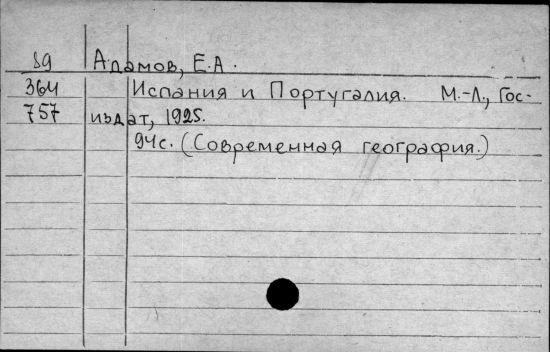 89 Адамов, Е.А.
364 Испания и Португалия. М.-Л., Гос-
757 издат, 1925.
94с. (Современная география.)